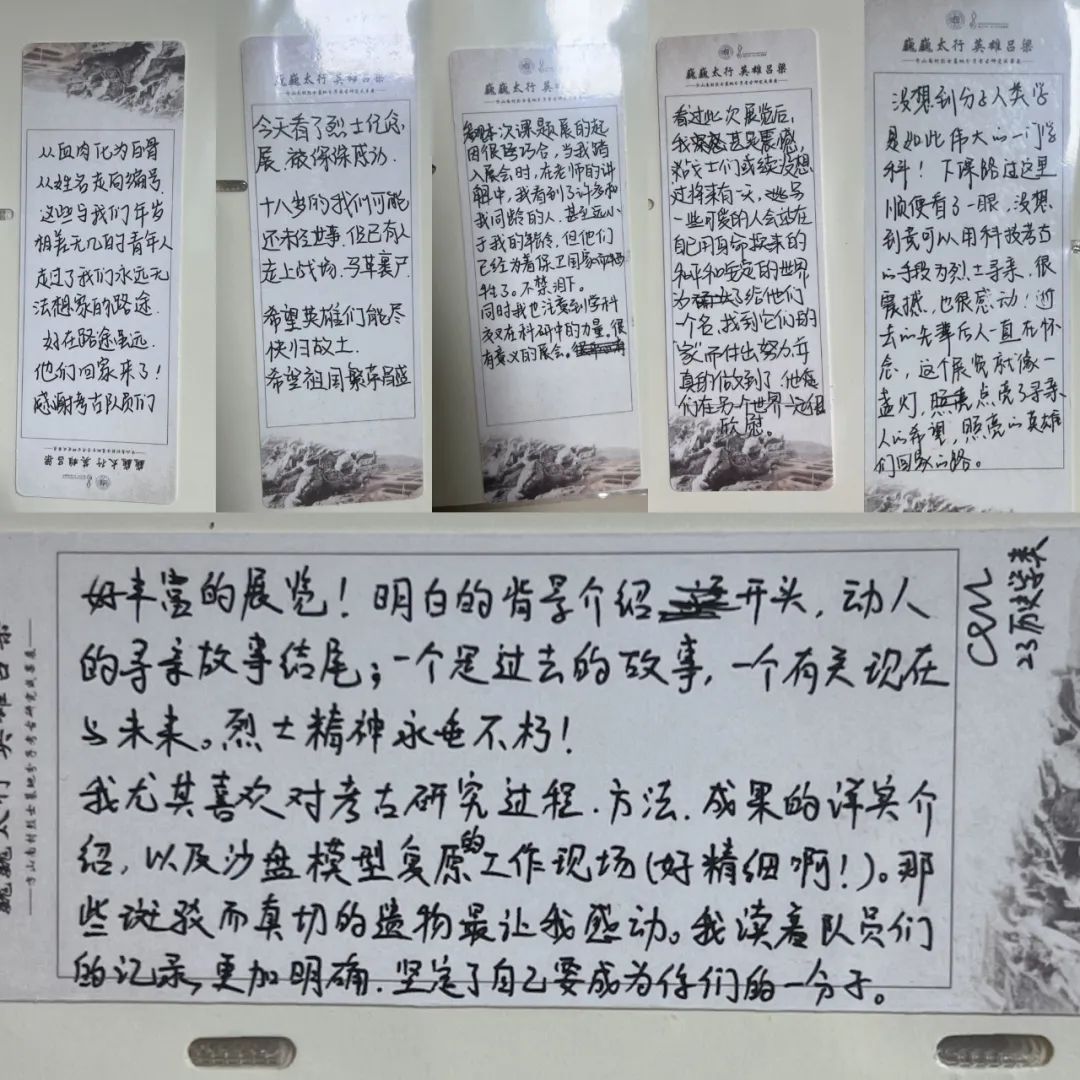 从血肉化为白骨
从姓名走向编号
这些与我们年岁
相差无几的青年人
走过了我们永远无
法想象的路途.
好在路途虽远
他们回家来了!
感谢考古队员们
巍巍太行 英雄吕梁
巍巍太行 英雄吕梁
今天看了烈士纪念
展,被深深感动.
十八岁的我们可能
还未经世事,但已有人
走上战场,马革裹尸
希望英雄们能尽
快归故土.
希望祖国繁荣昌盛
巍巍太行 英雄吕梁
本次课题展的起
因很巧合,当我踏
入展会时,在老师的讲
解中,我看到了许多和
我同龄的人,甚至远小
于我的年龄,但他们
已经为着保卫国家而牺
牲了。不禁泪下。
同时我也注意到学科
交叉在科研中的力量。很
有意义的展会。
巍巍太行 英雄吕梁
看过此次展览后,
我深感甚是震撼,
战士们或续没想
过将来有一天,
一些可爱的人会站在
自己用身命换来的
和平和安定的世界
为了给他们
一个名,找到它们的
“家”而付出努力并
真的做到了,他
们在另一个世界一定很
欣慰。
巍巍太行 英雄吕梁
没想到分子人类学
是如此伟大的一门学
科!下课路过这里
顺便看了一眼,没想
到竟可以用科技考古
的手段为烈士寻亲,很
震撼,也很感动!逝
去的先辈后人一直在怀
念,这个展览就像一
盏灯,点亮了寻亲
人的希望,照亮的英雄
们回家的路。
好丰富的展览!明白的背景介绍开头,动人
的寻亲故事结尾;一个是过去的故事,一个有关现在
与未来。烈士精神永垂不朽!
我尤其喜欢对考古研究过程、方法、成果的详实介
绍,以及沙盘模型复原的工作现场(好精细啊!)。那
些斑驳而真切的遗物最让我感动。我读着队员们
的记录,更加明确、坚定了自己要成为你们的一分子。
23历史学类
巍巍太行 英雄吕梁